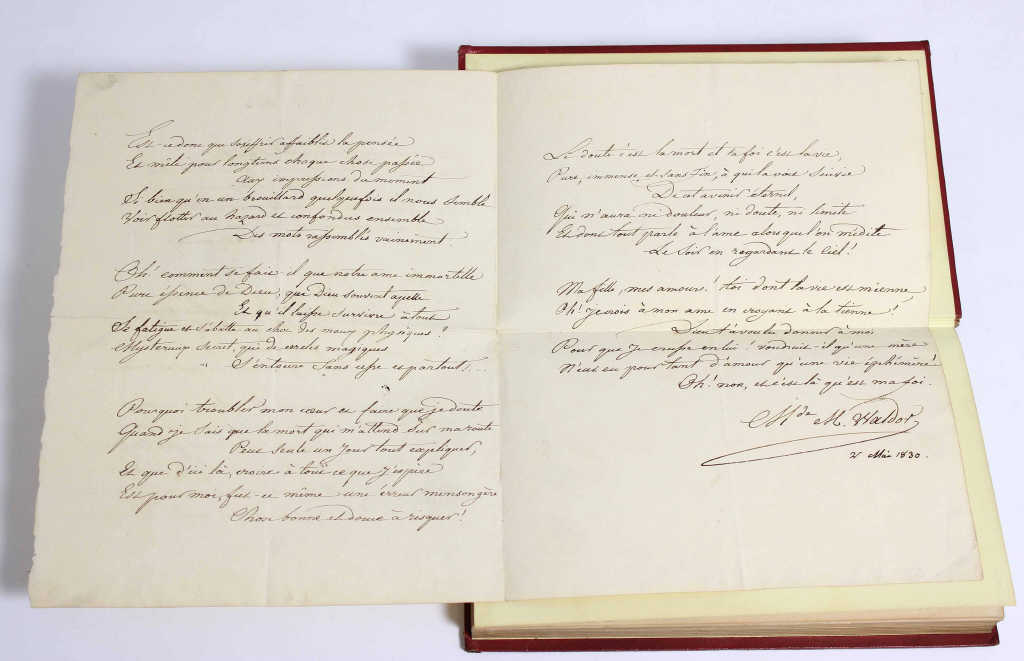 Est-ce donc que souffrir affaiblit la pensée
Et mêle pour longtems chaque chose passée
Aux impressions du moment
Si bien qu'en un brouillard quelquefois il nous semble
Voir flotter au hazard et confondus ensemble
Des mots rassemblés vainement.
Oh! comment se fait-il que notre ame immortelle
Pure essence de Dieu, que Dieu souvent appelle
Et qu'il laisse survivre à tout
Se fatigue et s'abatte au choc des maux physiques?
Mysterieux secret, que de cercles magiques
S'entoure sans cesse et partout!...
Pourquoi troubler mon cœur et faire que je doute
Quand je sais que la mort qui m'attend sur ma route
Peut seule un jour tout expliquer,
Et que d'ici là, croire à tout ce que j'espère
Est pour moi, fut-ce même une érreur mensongère
Chose bonne et douce à risquer!
Le doute c'est la mort et ta foi c'est la vie,
Pure, immense, et sans fin, à qui la voit suivie
De cet avenir éternel,
Qui n'aura ni douleur, ni doute, ni limite
Et dont tout parle à l'ame alorsque l'on médite
Le soir en regardant le ciel!
Ma fille, mes amours! toi dont la vie est mienne
Oh! je crois à mon ame en croyant à la tienne!
Dieu t'a voulu donner à moi
Pour que je crusse en lui! voudrait-il qu'une mère
N'eut eu pour tant d'amour qu'une vie éphémère!
Oh! non, et c'est là qu'est ma foi.
M.de M. Waldor
2 Mai 1830.